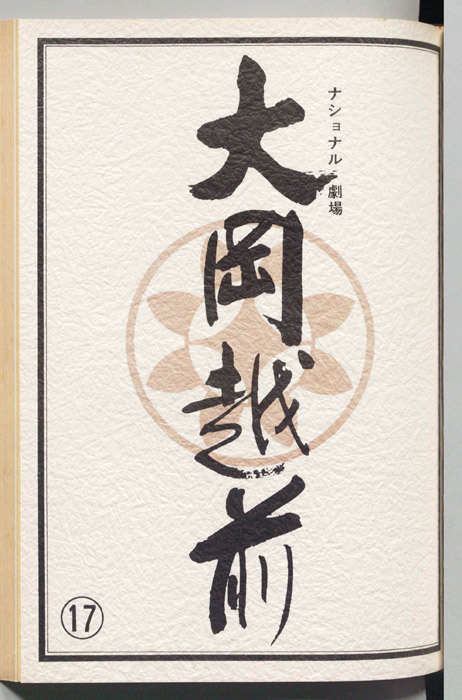 ナショナル劇場
大岡越前
17